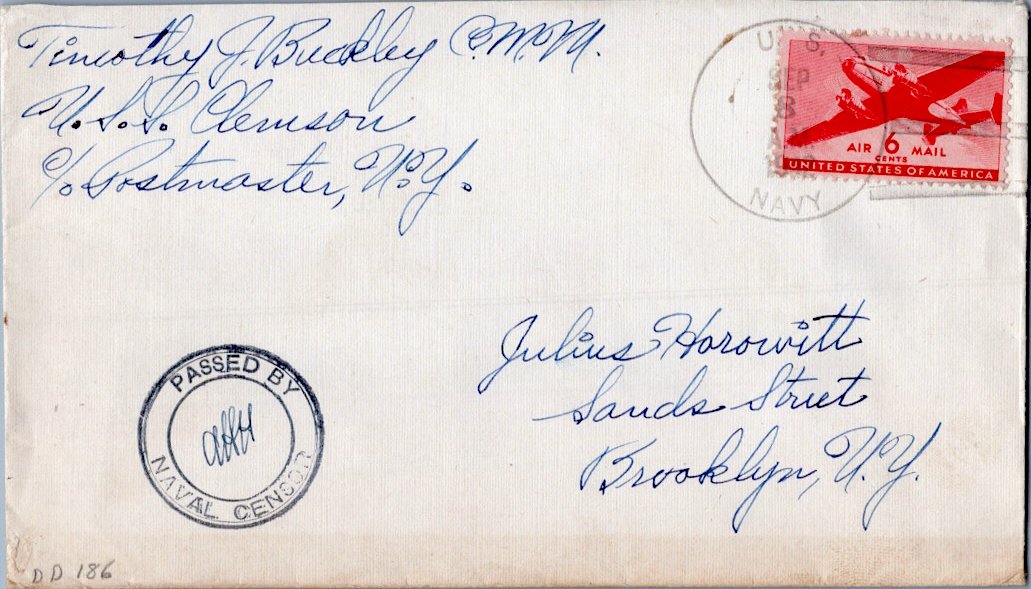 Timothy J. Buckley C.M.M.
U.S.S. Clemson
c/o Postmaster, N.Y.
U.S.
SEP
8
NAVY
AIR 6 MAIL
CENTS
UNITED STATES OF AMERICA
Julius Horowitt
Sands Street
Brooklyn, N.Y.
PASSED BY
NAVAL CENSOR
DD 186